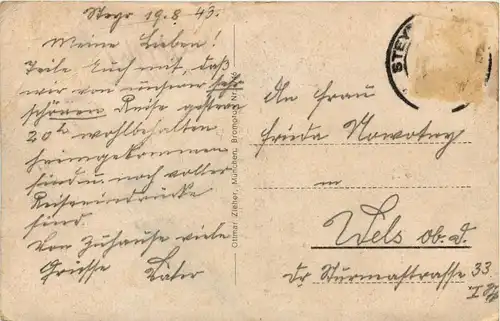 Steyr 19.8.43.
Meine Lieben!
Teile Euch mit, daß
wir von unserer sehr
schönen Reise gestern
20h wohlbehalten
heimgekommen
sind u. noch voller
Reiseeindrücke
sind.
Von Zuhause viele
Grüsse
Ottmar Zieher, München, Bromotone Nr.
STEY
An Frau
Frida Nowotny
in
Wels ob. d.
Dr Sturmastrasse 33